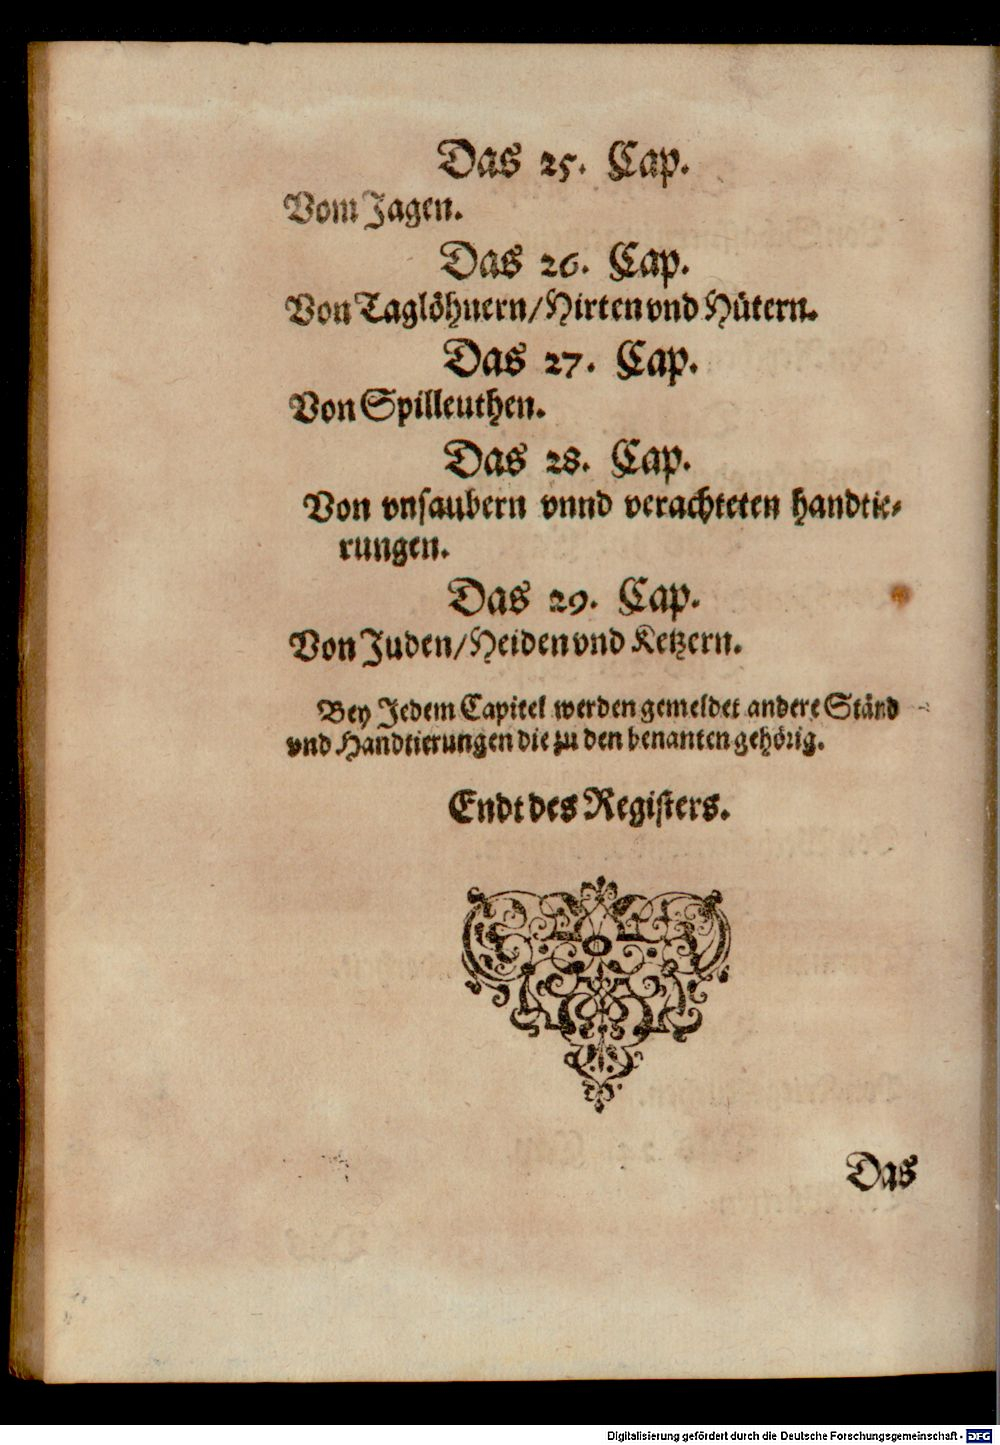 Das 25. Cap.
Vom Jagen.
Das 26. Cap.
Von Taglöhnern/Hirten vnd Hütern.
Das 27. Cap.
Von Spilleuthen.
Das 28. Cap.
Von vnsaubern vnnd verachteten handtie-
rungen.
Das 29. Cap.
Von Juden/Heiden vnd Ketzern.
Bey Jedem Capitel werden gemeldet andere Ständ
vnd Handtierungen die zu den benanten gehörig.
Endt des Registers.
Das
Digitalisierung gefördert durch die Deutsche Forschungsgemeinschaft - DFG